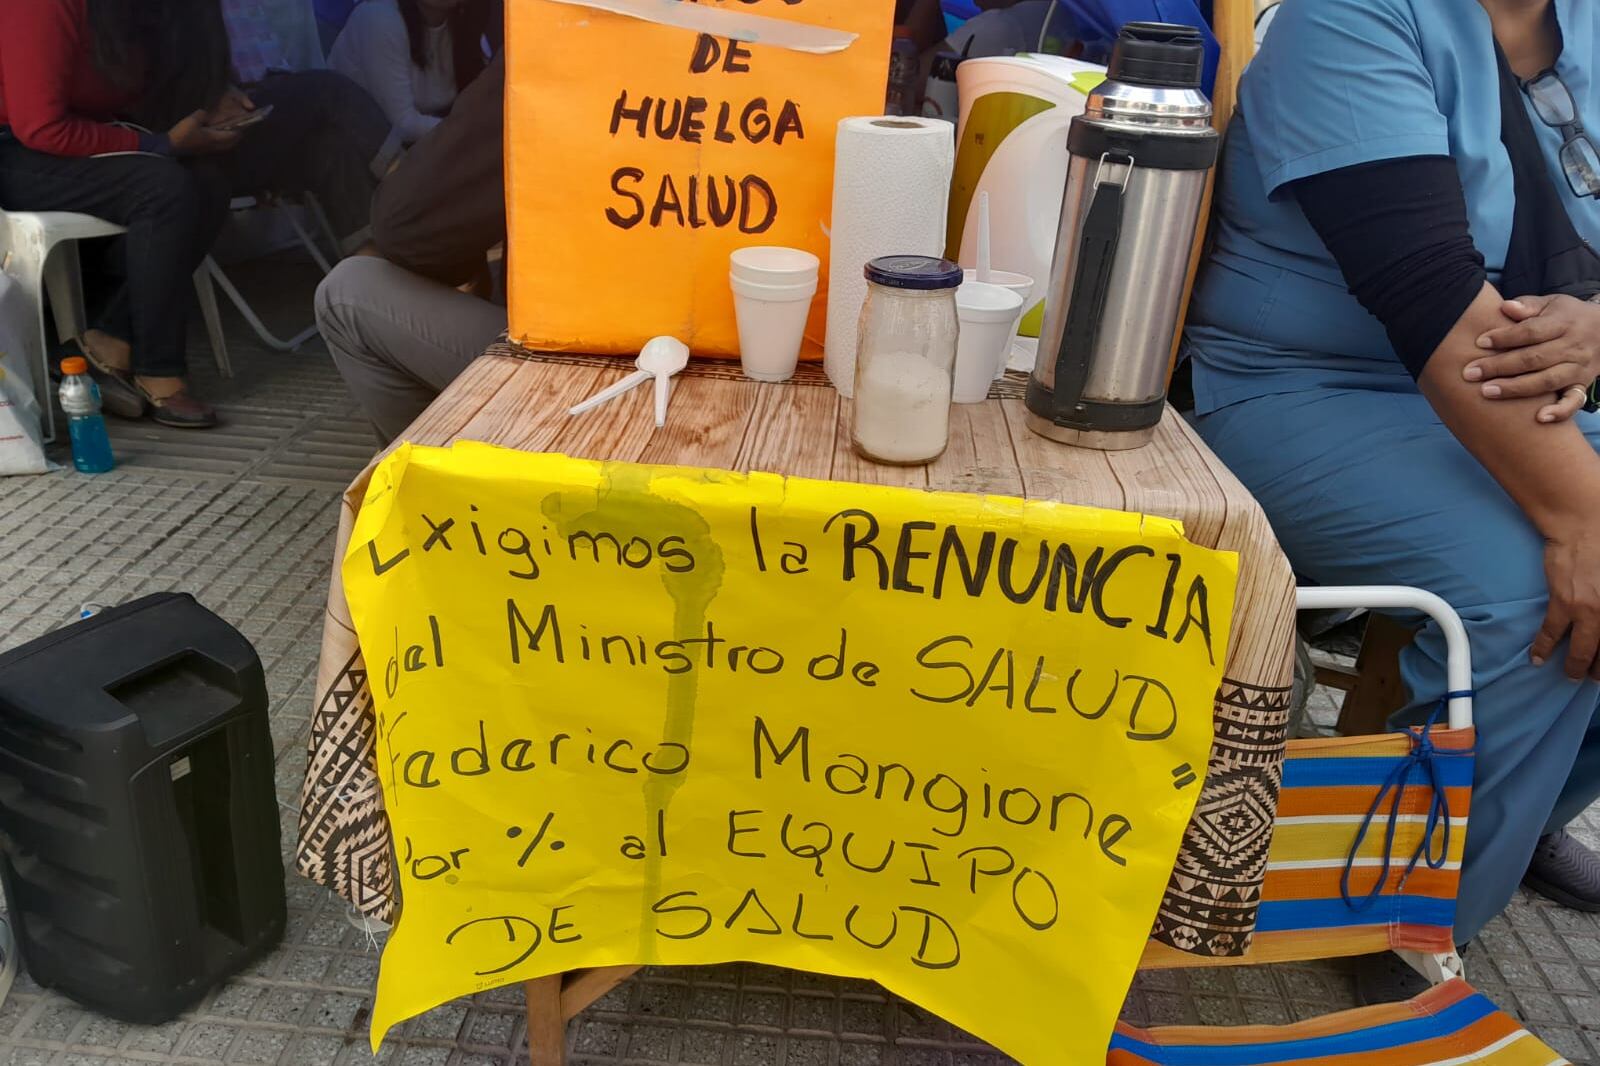 DE
HUELGA
SALUD
Exigimos la RENUNCIA
del Ministro de SALUD
"Federico Mangione"
Por % al EQUIPO
DE SALUD